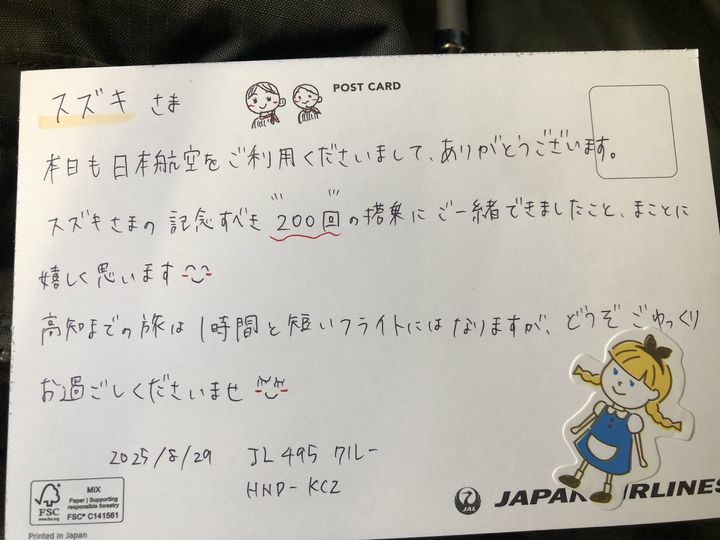 スズキ さま
POST CARD
本日も日本航空をご利用くださいまして、ありがとうございます。
スズキさまの記念すべき 200回 の搭乗にご一緒できましたこと、まことに
嬉しく思います
高知までの旅は1時間と短いフライトにはなりますが、どうぞごゆっくり
お過ごしくださいませ
2025/8/29 JL495 クルー
HND-KCZ
FSC
www.fsc.org
MIX
Paper | Supporting
responsible forestry
FSC® C141561
Printed in Japan
JAL
JAPAN AIRLINES